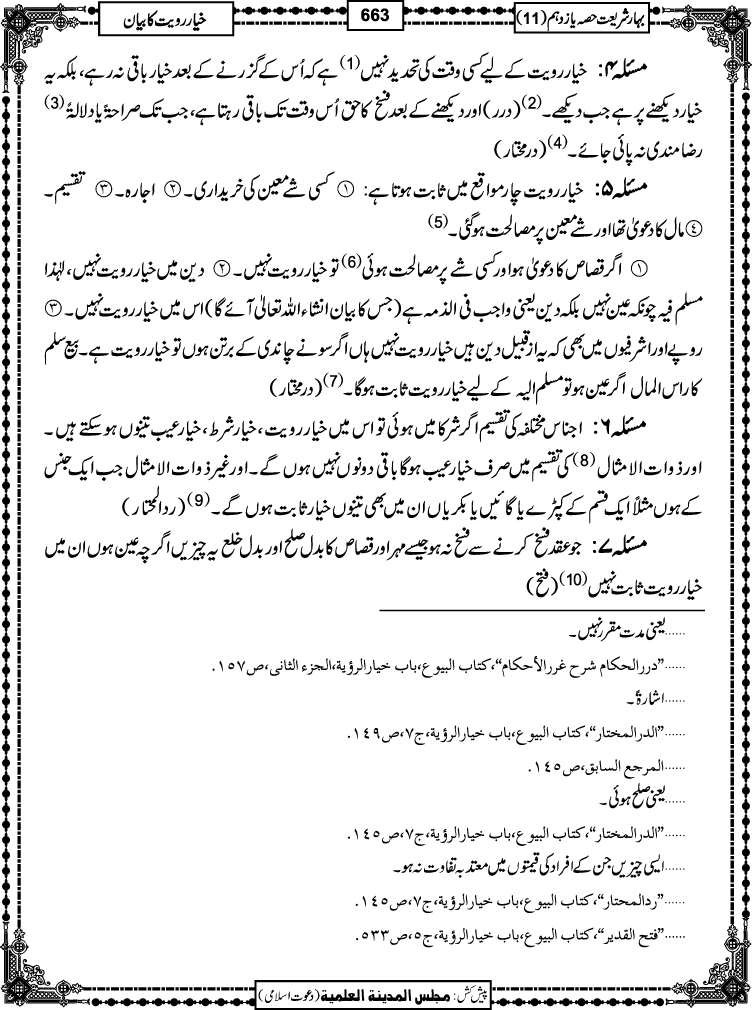 بہارشریعت حصہ یازدہم (11)
663
خیار رویت کا بیان
مسئلہ ۴: خیار رویت کے لیے کسی وقت کی تحدید نہیں(1) ہے کہ اُس کے گزرنے کے بعد خیار باقی نہ رہے، بلکہ یہ
خیار دیکھنے پر ہے جب دیکھے۔(2) (درر) اور دیکھنے کے بعد فسخ کا حق اُس وقت تک باقی رہتا ہے، جب تک صراحۃً یا دلالۃً(3)
رضا مندی نہ پائی جائے۔(4) (درمختار)
مسئلہ ۵: خیار رویت چار مواقع میں ثابت ہوتا ہے: ① کسی شے معین کی خریداری۔ ② اجارہ۔ ③ تقسیم۔
④ مال کا دعویٰ تھا اور شے معین پر مصالحت ہوگئی۔(5)
① اگر قصاص کا دعویٰ ہو اور کسی شے پر مصالحت ہوئی(6) تو خیار رویت نہیں۔ ② دین میں خیار رویت نہیں، لہٰذا
مسلم فیہ چونکہ عین نہیں بلکہ دین یعنی واجب فی الذمہ ہے (جس کا بیان انشاء اللہ تعالیٰ آئے گا) اس میں خیار رویت نہیں۔ ③
روپے اور اشرفیوں میں بھی کہ یہ از قبیل دین ہیں خیار رویت نہیں ہاں اگر سونے چاندی کے برتن ہوں تو خیار رویت ہے۔ بیع سلم
کا راس المال اگر عین ہو تو مسلم الیہ کے لیے خیار رویت ثابت ہوگا۔(7) (درمختار)
مسئلہ ۶: اجناس مختلفہ کی تقسیم اگر شرکا میں ہوئی تو اس میں خیار رویت، خیار شرط، خیار عیب تینوں ہوسکتے ہیں۔
اور ذوات الامثال(8) کی تقسیم میں صرف خیار عیب ہوگا باقی دونوں نہیں ہوں گے۔ اور غیر ذوات الامثال جب ایک جنس
کے ہوں مثلاً ایک قسم کے کپڑے یا گائیں یا بکریاں ان میں بھی تینوں خیار ثابت ہوں گے۔(9) (ردالمحتار)
مسئلہ ۷: جو عقد فسخ کرنے سے فسخ نہ ہو جیسے مہر اور قصاص کا بدل صلح اور بدل خلع یہ چیزیں اگرچہ عین ہوں ان میں
خیار رویت ثابت نہیں(10) (فتح)
......یعنی مدت مقرر نہیں۔
......”دررالحکام شرح غررالأحکام“،کتاب البیوع،باب خیارالرؤیة،الجزء الثانی،ص۱۵۷.
......اشارۃً۔
......”الدرالمختار“،کتاب البیوع،باب خیارالرؤیة،ج۷،ص۱۴۹.
......المرجع السابق،ص۱۴۵.
......یعنی صلح ہوئی۔
......”الدرالمختار“،کتاب البیوع،باب خیارالرؤیة،ج۷،ص۱۴۵.
......ایسی چیزیں جن کے افراد کی قیمتوں میں معتد بہ تفاوت نہ ہو۔
......”ردالمحتار“،کتاب البیوع،باب خیارالرؤیة،ج۷،ص۱۴۵.
......”فتح القدیر“،کتاب البیوع،باب خیارالرؤیة،ج۵،ص۵۳۳.
پیش کش: مجلس المدینة العلمیة (دعوت اسلامی)